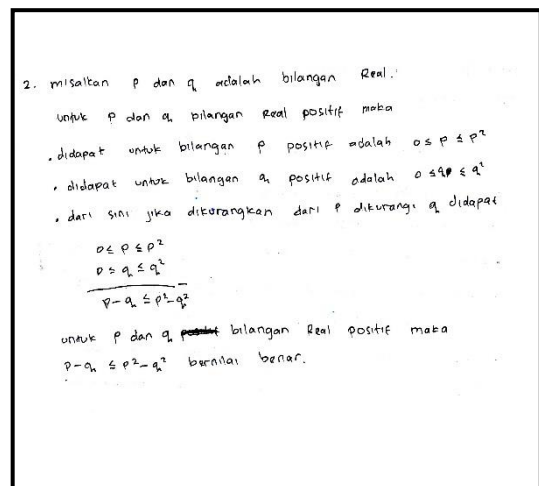 2. misalkan p dan q adalah bilangan Real.
untuk p dan q bilangan Real positif maka
• didapat untuk bilangan p positif adalah 0 ≤ p ≤ p²
• didapat untuk bilangan q positif adalah 0 ≤ q ≤ q²
• dari sini jika dikurangkan dari p dikurangi q didapat
0 ≤ p ≤ p²
0 ≤ q ≤ q²
p - q ≤ p² - q²
untuk p dan q bilangan Real positif maka
p - q ≤ p² - q² bernilai benar.